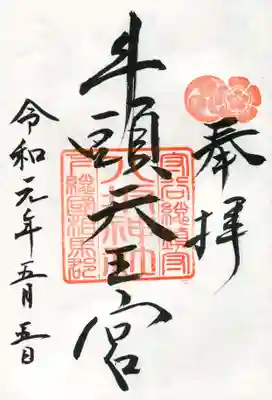 奉拝
牛頭天王宮
令和元年五月五日